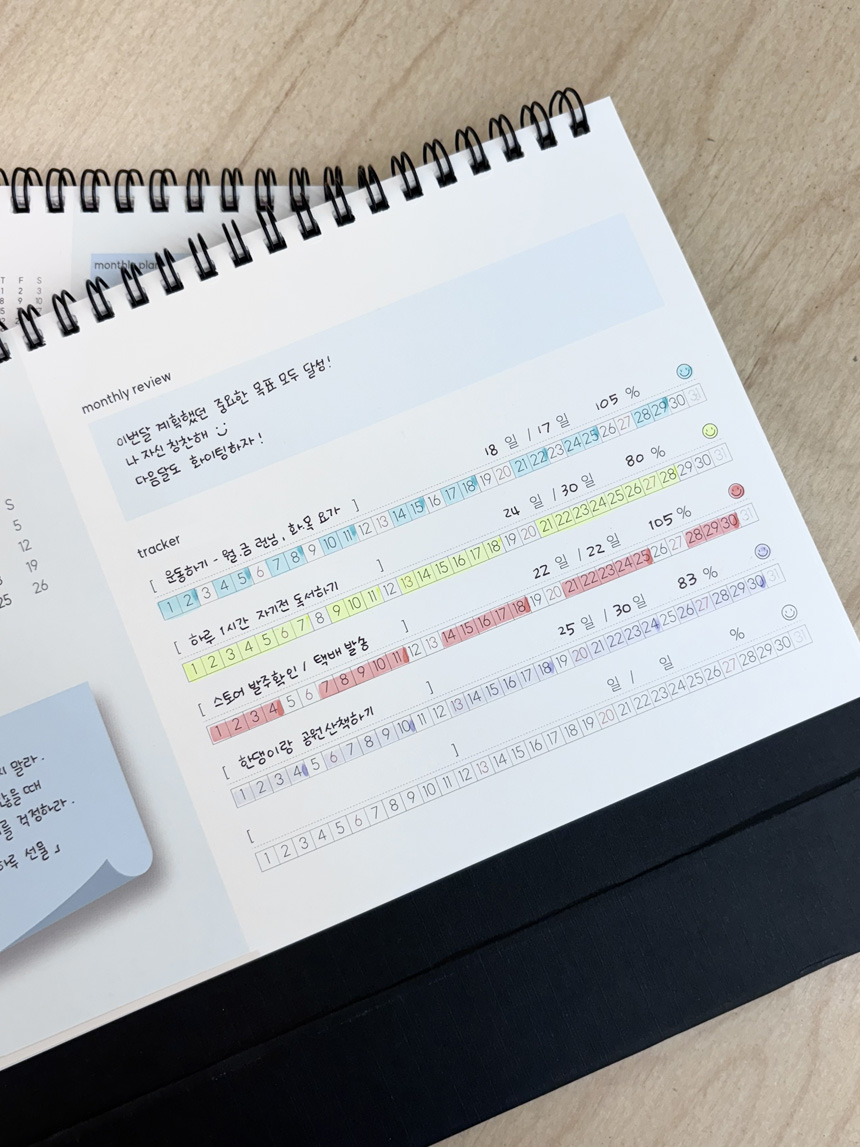 monthly plan
T F S
1 2 3
8 9 10
S
5
12
19
25 26
말라.
때
를 걱정하라.
하루 선물」
monthly review
이번달 계획했던 중요한 목표 모두 달성!
나 자신 칭찬해
다음달도 화이팅하자!
tracker
[ 운동하기 - 월.금 런닝, 화.목 요가 ] 18 일 / 17 일 105 %
1 2 3 4 5 6 7 8 9 10 11 12 13 14 15 16 17 18 19 20 21 22 23 24 25 26 27 28 29 30 31
[ 하루 1시간 자기전 독서하기 ] 24 일 / 30 일 80 %
1 2 3 4 5 6 7 8 9 10 11 12 13 14 15 16 17 18 19 20 21 22 23 24 25 26 27 28 29 30 31
[ 스토어 발주확인 / 택배 발송 ] 22 일 / 22 일 105 %
1 2 3 4 5 6 7 8 9 10 11 12 13 14 15 16 17 18 19 20 21 22 23 24 25 26 27 28 29 30 31
[ 한댕이랑 공원산책하기 ] 25 일 / 30 일 83 %
1 2 3 4 5 6 7 8 9 10 11 12 13 14 15 16 17 18 19 20 21 22 23 24 25 26 27 28 29 30 31
[ ] 일 / 일 %
1 2 3 4 5 6 7 8 9 10 11 12 13 14 15 16 17 18 19 20 21 22 23 24 25 26 27 28 29 30 31